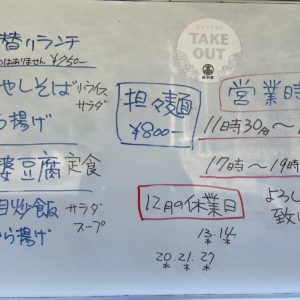 替りランチ
はありません ¥750
やしそば ライス
サラダ
ら揚げ
婆豆腐 定食
目炒飯 サラダ
スープ
ら揚げ
TAKE
OUT
担々麺
¥800—
営業時
11時30分〜
17時〜19時
12月の休業日
13. 14.
20. 21. 27
よろし
致